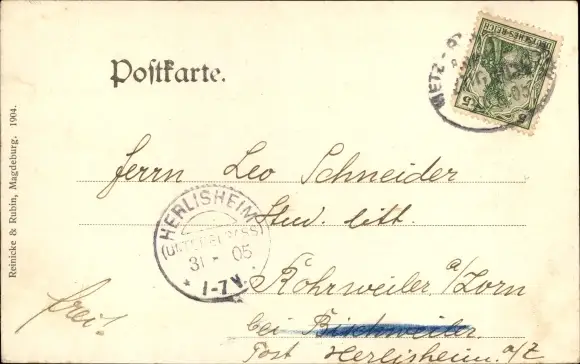 Postkarte.
METZ
DEUTSCHES REICH
5 5
05
Herrn Leo Schneider
Stud. litt.
HERLISHEIM
(UNTERELSASS)
31 - 05
* 1-7V. *
Rohrweiler a/Zorn
bei Bischweiler.
Post Herlisheim. a/Z
frei.
Reinicke & Rubin, Magdeburg. 1904.